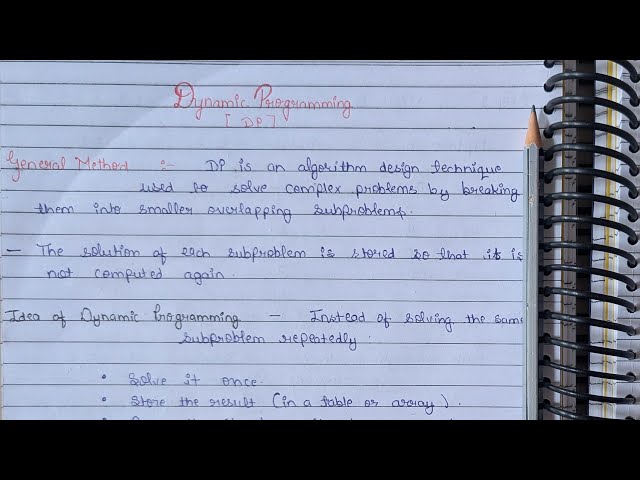 Dynamic Programming
[DP]
General Method :- DP is an algorithm design technique
used to solve complex problems by breaking
them into smaller overlapping subproblems.
- The solution of each subproblem is stored so that it is
not computed again.
Idea of Dynamic Programming - Instead of solving the same
subproblem repeatedly.
• Solve it once.
• Store the result (in a table or array).